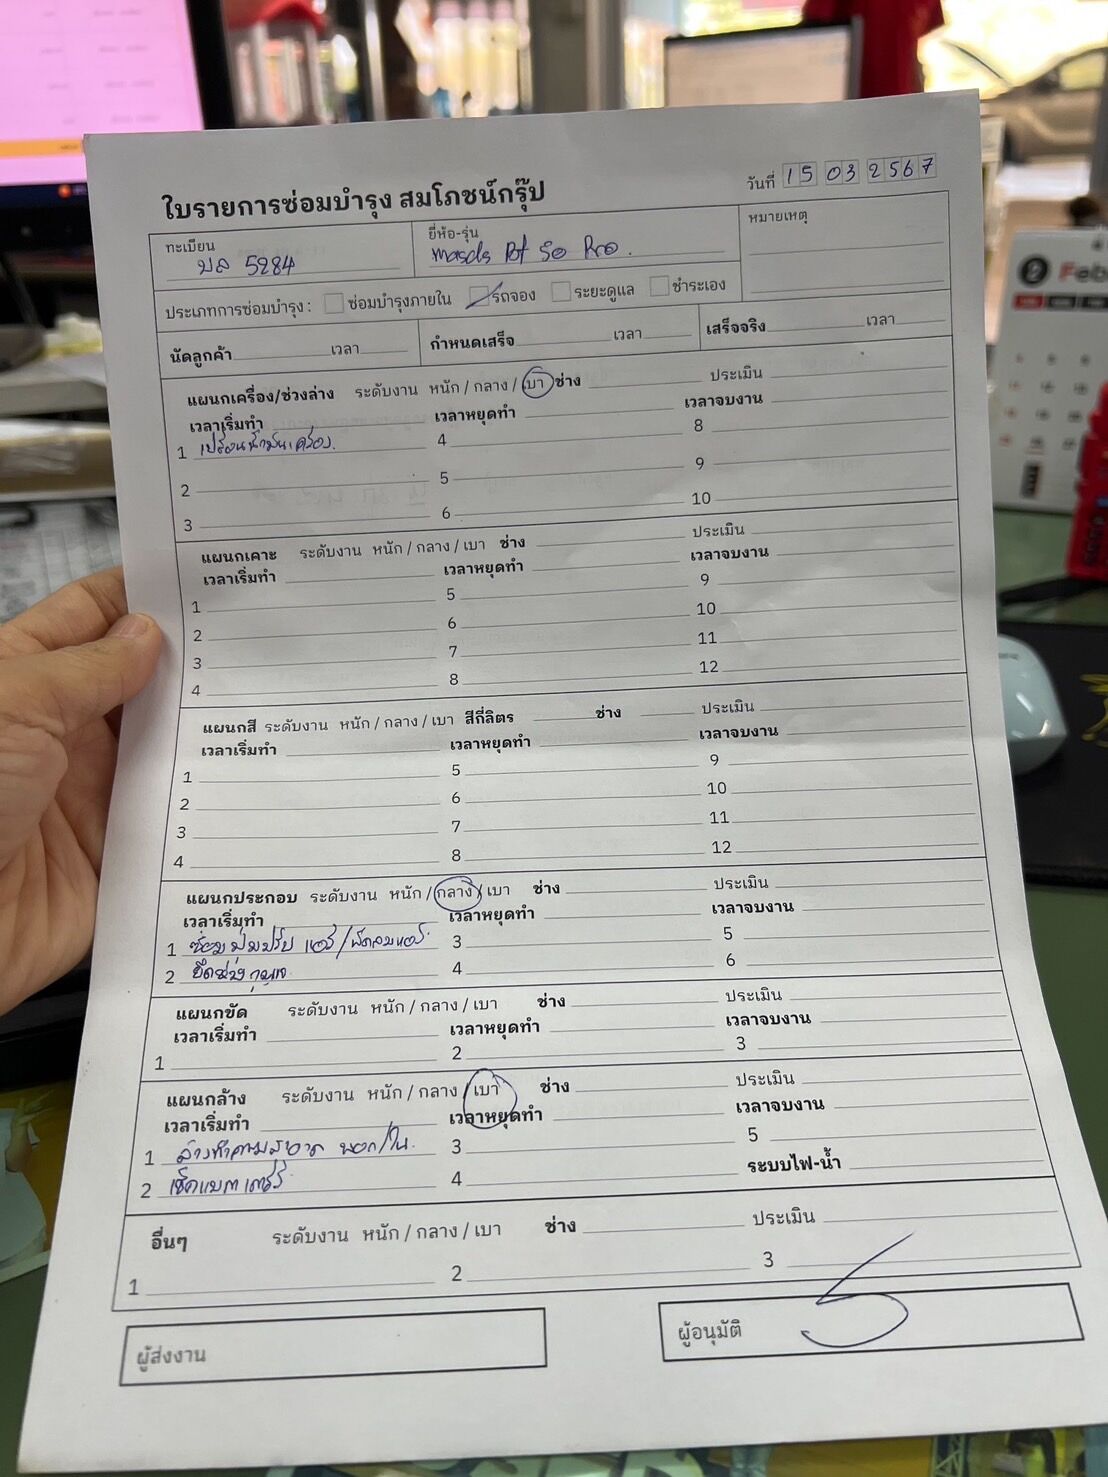 ใบรายการซ่อมบำรุง สมโภชน์กรุ๊ป
วันที่ 15 03 2567
ทะเบียน บล 5284
ยี่ห้อ-รุ่น
หมายเหตุ
ประเภทการซ่อมบำรุง : ซ่อมบำรุงภายใน รถจอง ระยะดูแล ชำระเอง
นัดลูกค้า เวลา กำหนดเสร็จ เวลา เสร็จจริง เวลา
แผนกเครื่อง/ช่วงล่าง ระดับงาน หนัก / กลาง / เบา ช่าง ประเมิน
เวลาเริ่มทำ เวลาหยุดทำ เวลาจบงาน
1 เปลี่ยนน้ำมันเครื่อง. 4 8
2 5 9
3 6 10
แผนกเคาะ ระดับงาน หนัก / กลาง / เบา ช่าง ประเมิน
เวลาเริ่มทำ เวลาหยุดทำ เวลาจบงาน
1 5 9
2 6 10
3 7 11
4 8 12
แผนกสี ระดับงาน หนัก / กลาง / เบา สีกี่ลิตร ช่าง ประเมิน
เวลาเริ่มทำ เวลาหยุดทำ เวลาจบงาน
1 5 9
2 6 10
3 7 11
4 8 12
แผนกประกอบ ระดับงาน หนัก / กลาง / เบา ช่าง ประเมิน
เวลาเริ่มทำ เวลาหยุดทำ เวลาจบงาน
1 ซ่อมปุ่มปรับ แอร์/พัดลมแอร์ 3 5
2 4 6
แผนกขัด ระดับงาน หนัก / กลาง / เบา ช่าง ประเมิน
เวลาเริ่มทำ เวลาหยุดทำ เวลาจบงาน
1 2 3
แผนกล้าง ระดับงาน หนัก / กลาง / เบา ช่าง ประเมิน
เวลาเริ่มทำ เวลาหยุดทำ เวลาจบงาน
1 ล้างทำความสะอาด นอก/ใน. 3 5
2 เช็คแบตเตอรี่ 4 ระบบไฟ-น้ำ
อื่นๆ ระดับงาน หนัก / กลาง / เบา ช่าง ประเมิน
1 2 3
ผู้ส่งงาน
ผู้อนุมัติ
2 Feb